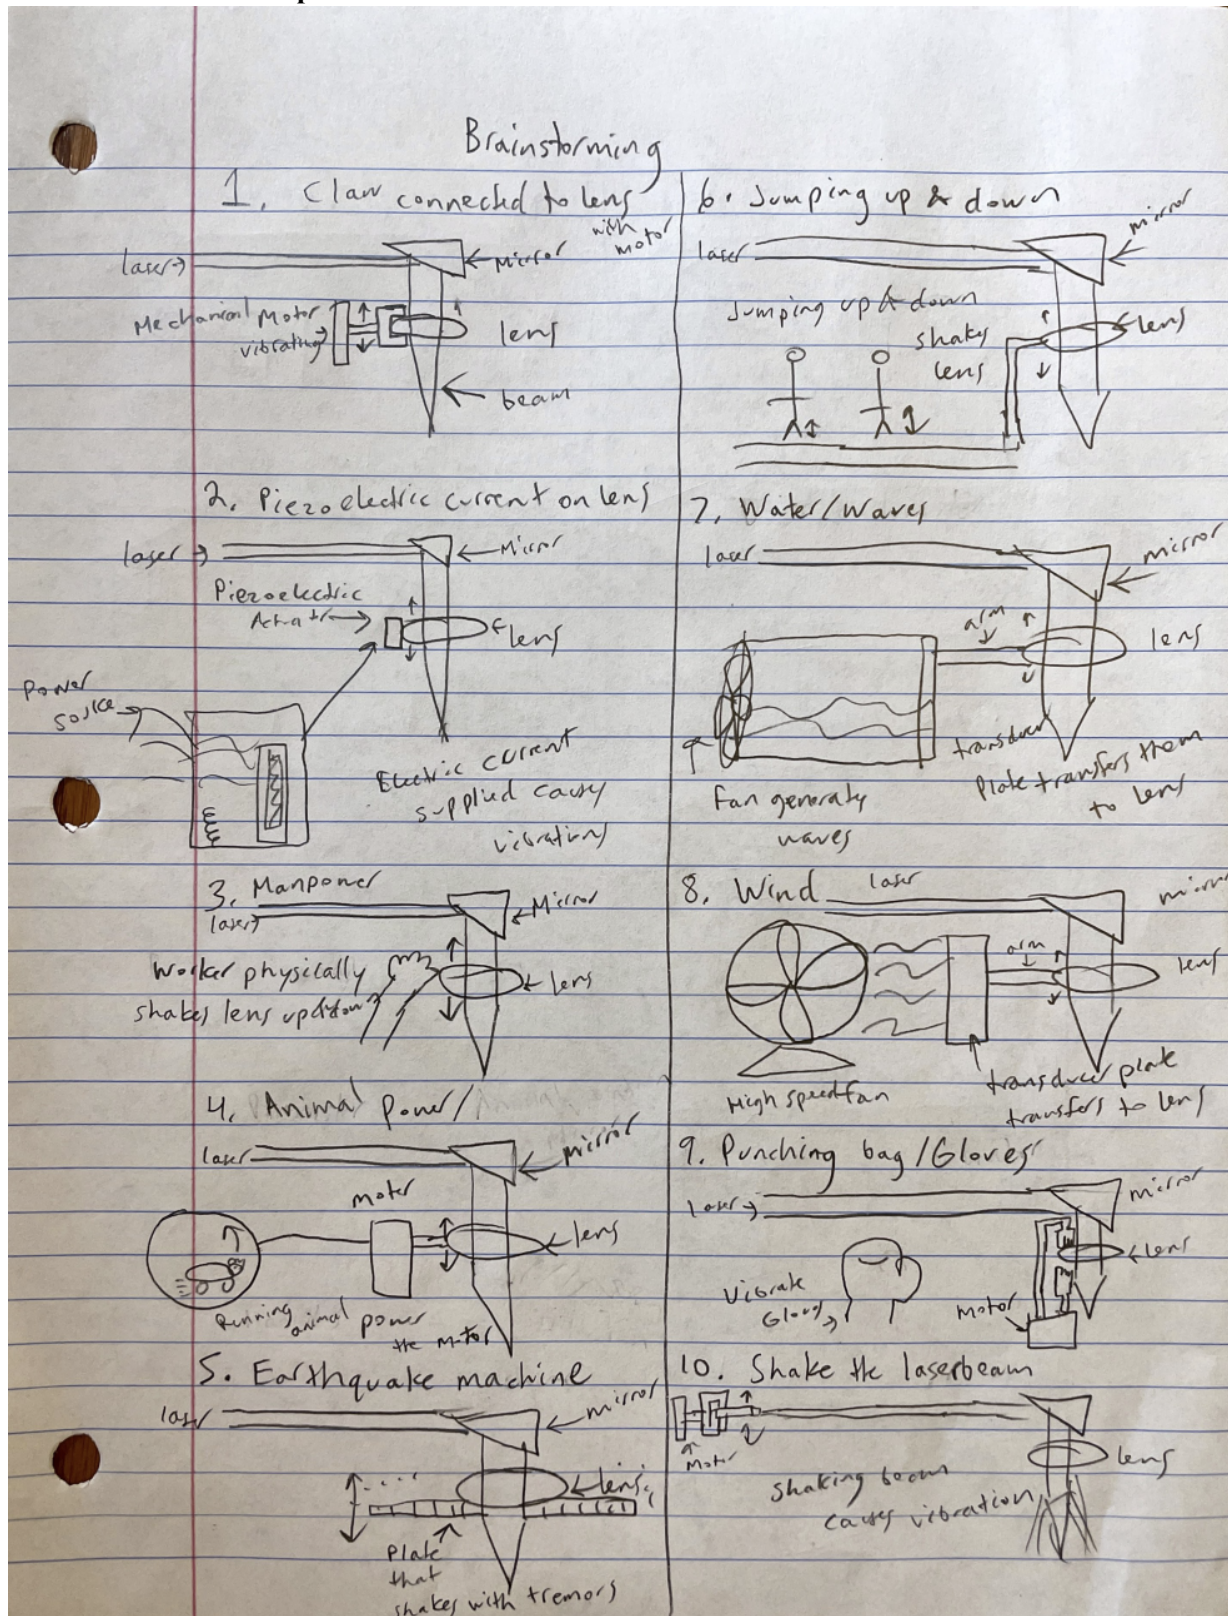 Brainstorming
1. Claw connected to lens
with
motor
laser
Mirror
Mechanical Motor
vibrating
lens
beam
2. Piezoelectric current on lens
laser
Mirror
Piezoelectric
lens
Power
Electric current
supplied causes
vibrations
3. Manpower
laser
Mirror
Worker physically
shakes lens up
lens
4. Animal Power/
laser
mirror
motor
lens
Running
animal power
the motor
5. Earthquake machine
laser
mirror
lens
Plate
that
shakes with tremors
6. Jumping up & down
mirror
laser
Jumping up & down
shakes
lens
lens
7. Water/Waves
laser
mirror
arm
lens
transducer
Plate transfers them
to lens
Fan generates
waves
8. Wind
laser
mirror
arm
lens
High speed fan
transducer plate
transfers to lens
9. Punching bag/Gloves
laser
mirror
lens
Vibrate
Gloves
motor
10. Shake the laserbeam
Motor
lens
Shaking beam
causes vibration